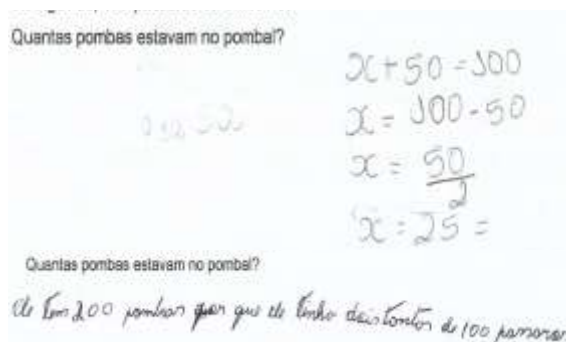 Quantas pombas estavam no pombal?
x + 50 = 100
x = 100 - 50
x = 50/2
x = 25 =
Quantas pombas estavam no pombal?
ele tem 200 pombas por que ele tinha dois tantos de 100 pássaros